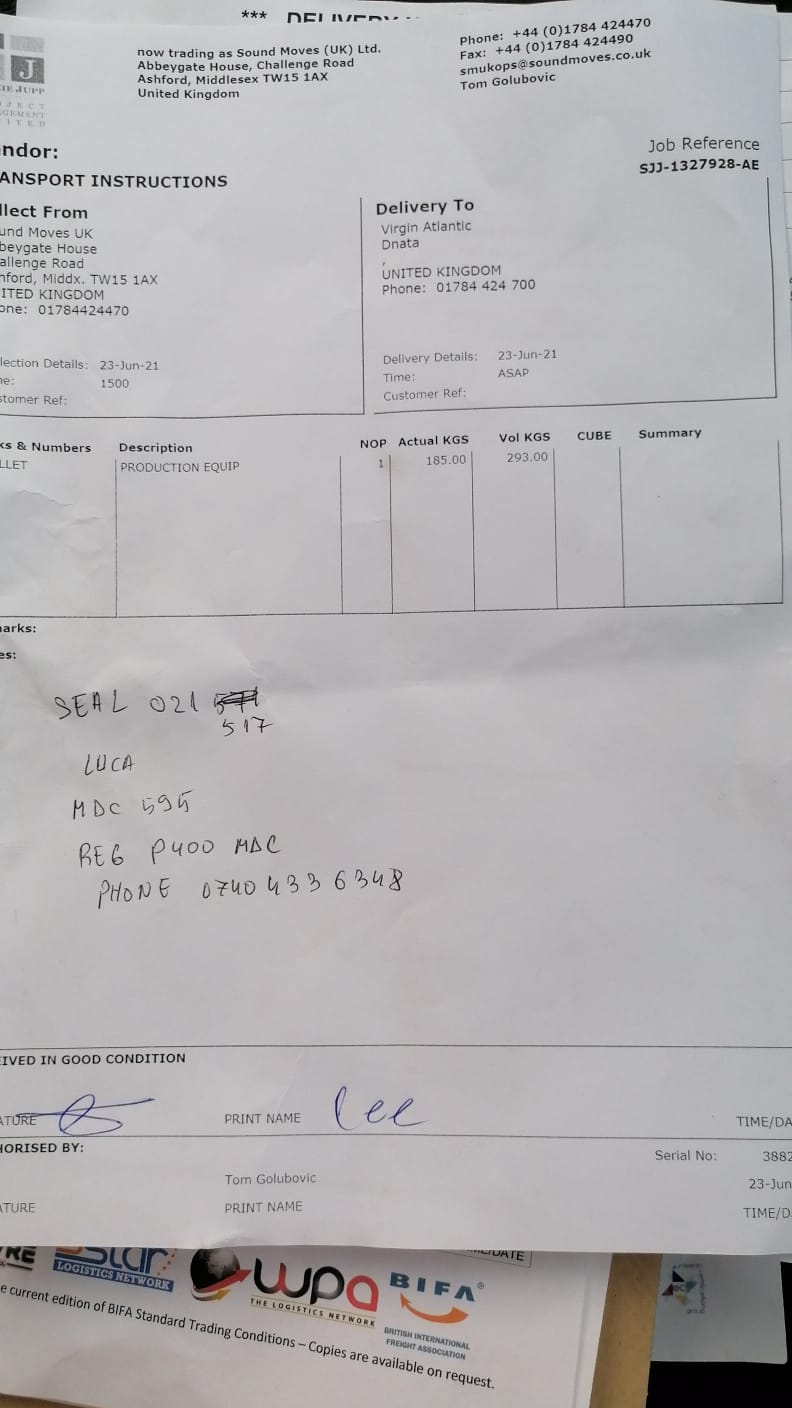 *** DELIVERY
now trading as Sound Moves (UK) Ltd.
Abbeygate House, Challenge Road
Ashford, Middlesex TW15 1AX
United Kingdom
Phone: +44 (0)1784 424470
Fax: +44 (0)1784 424490
smukops@soundmoves.co.uk
Tom Golubovic
J
IE JUPP
JECT
GEMENT
ITED
ndor:
Job Reference
SJJ-1327928-AE
ANSPORT INSTRUCTIONS
llect From
und Moves UK
beygate House
allenge Road
hford, Middx. TW15 1AX
ITED KINGDOM
one: 01784424470
lection Details: 23-Jun-21
ne: 1500
stomer Ref:
Delivery To
Virgin Atlantic
Dnata
,
UNITED KINGDOM
Phone: 01784 424 700
Delivery Details: 23-Jun-21
Time: ASAP
Customer Ref:
ks & Numbers Description NOP Actual KGS Vol KGS CUBE Summary
LLET PRODUCTION EQUIP 1 185.00 293.00
arks:
es:
SEAL 021
517
LUCA
MDC 595
REG P400 MDC
PHONE 0740 433 6348
EIVED IN GOOD CONDITION
ATURE PRINT NAME Lee TIME/DA
HORISED BY:
Serial No: 3882
Tom Golubovic 23-Jun
ATURE PRINT NAME TIME/D
DATE
RE
Star
LOGISTICS NETWORK
wpa
THE LOGISTICS NETWORK
BIFA®
BRITISH INTERNATIONAL
FREIGHT ASSOCIATION
e current edition of BIFA Standard Trading Conditions – Copies are available on request.